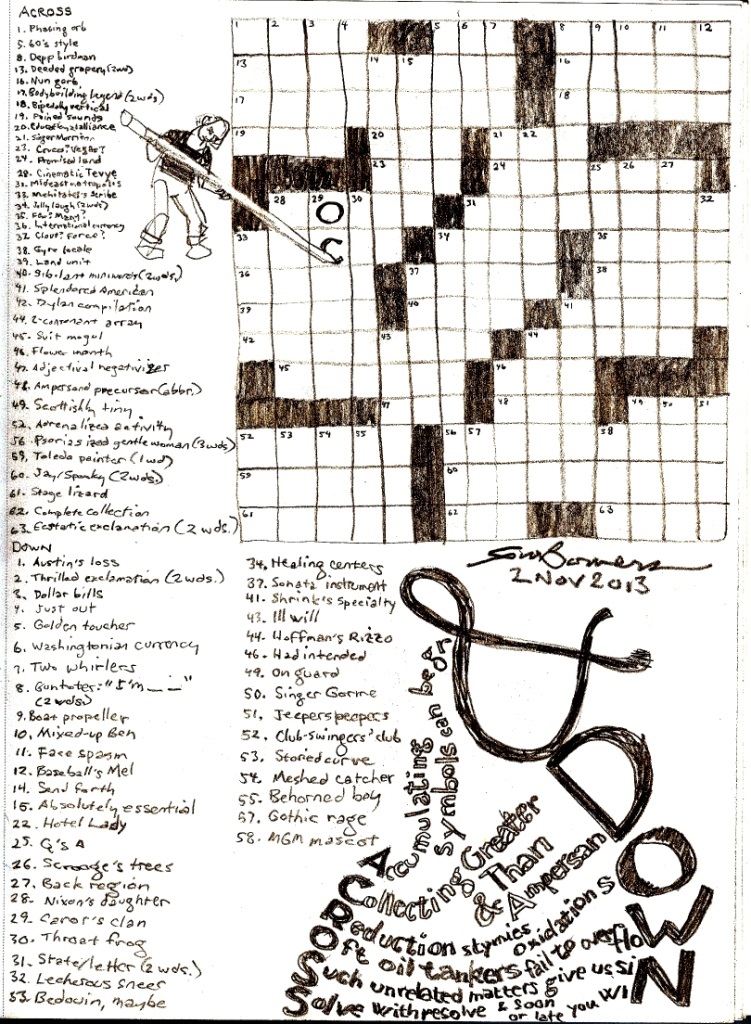 ACROSS
1. Phasing orb
5. 60's style
8. Depp birdman
13. Deeded grapery (2wd)
16. Nun garb
17. Bodybuilding legend (2 wds)
18. Bipedally vertical
19. Pained sounds
20. alliance
21. Singer Morrison
23. Cruces? Vegas?
24. Promised land
28. Cinematic Tevye
31. Mideast metropolis
33. Mehitabel's scribe
34. Jolly laugh (2 wds)
35. Few? Many?
36. International currency
37. Clout? Force?
38. Gyro locale
39. Land unit
40. Sibilant miniwords (2wds.)
41. Splendored American
42. Dylan compilation
44. 2-component array
45. Suit mogul
46. Flower month
47. Adjectival negativizer
48. Ampersand precursor (abbr.)
49. Scottishly tiny
52. Adrenalized activity
56. Psoriasized gentlewoman (3 wds)
59. Toledo painter (1 wd)
60. Jay/Spanky (2 wds.)
61. Stage lizard
62. Complete collection
63. Ecstatic exclamation (2 wds.)
DOWN
1. Austin's loss
2. Thrilled exclamation (2 wds.)
3. Dollar bills
4. Just out
5. Golden toucher
6. Washingtonian currency
7. Two whirlers
8. Guntoter: "I'm _ _"
(2 wds)
9. Boat propeller
10. Mixed-up Ben
11. Face spasm
12. Baseball's Mel
14. Send forth
15. Absolutely essential
22. Hotel Lady
25. Q's A
26. Scrooge's trees
27. Back region
28. Nixon's daughter
29. Caror's clan
30. Throat frog
31. State/letter (2 wds.)
32. Lecherous sneer
33. Bedouin, maybe
34. Healing centers
37. Sonata instrument
41. Shrink's specialty
43. Ill will
44. Hoffman's Rizzo
46. Had intended
49. On guard
50. Singer Gorme
51. Jeepers peepers
52. Club-swingers' club
53. Storied curve
54. Meshed catcher
55. Behorned boy
57. Gothic rage
58. MGM mascot
1 2 3 4 5 6 7 8 9 10 11 12
13 14 15 16
17 18
19 20 21 22
23 24 25 26 27
28 29 30 31 32
O
33 34 35
C
36 37 38
39 40 41
42 43 44
45 46
47 48 49 50 51
52 53 54 55 56 57 58
59 60
61 62 63
2 NOV 2013
& DOWN
Accumulating symbols can be gr
Collecting Greater Than & Ampersan
Reduction stymies oxidations
Oft oil tankers fail to overflo
Such unrelated matters give us si
Solve with resolve & soon or late you WI